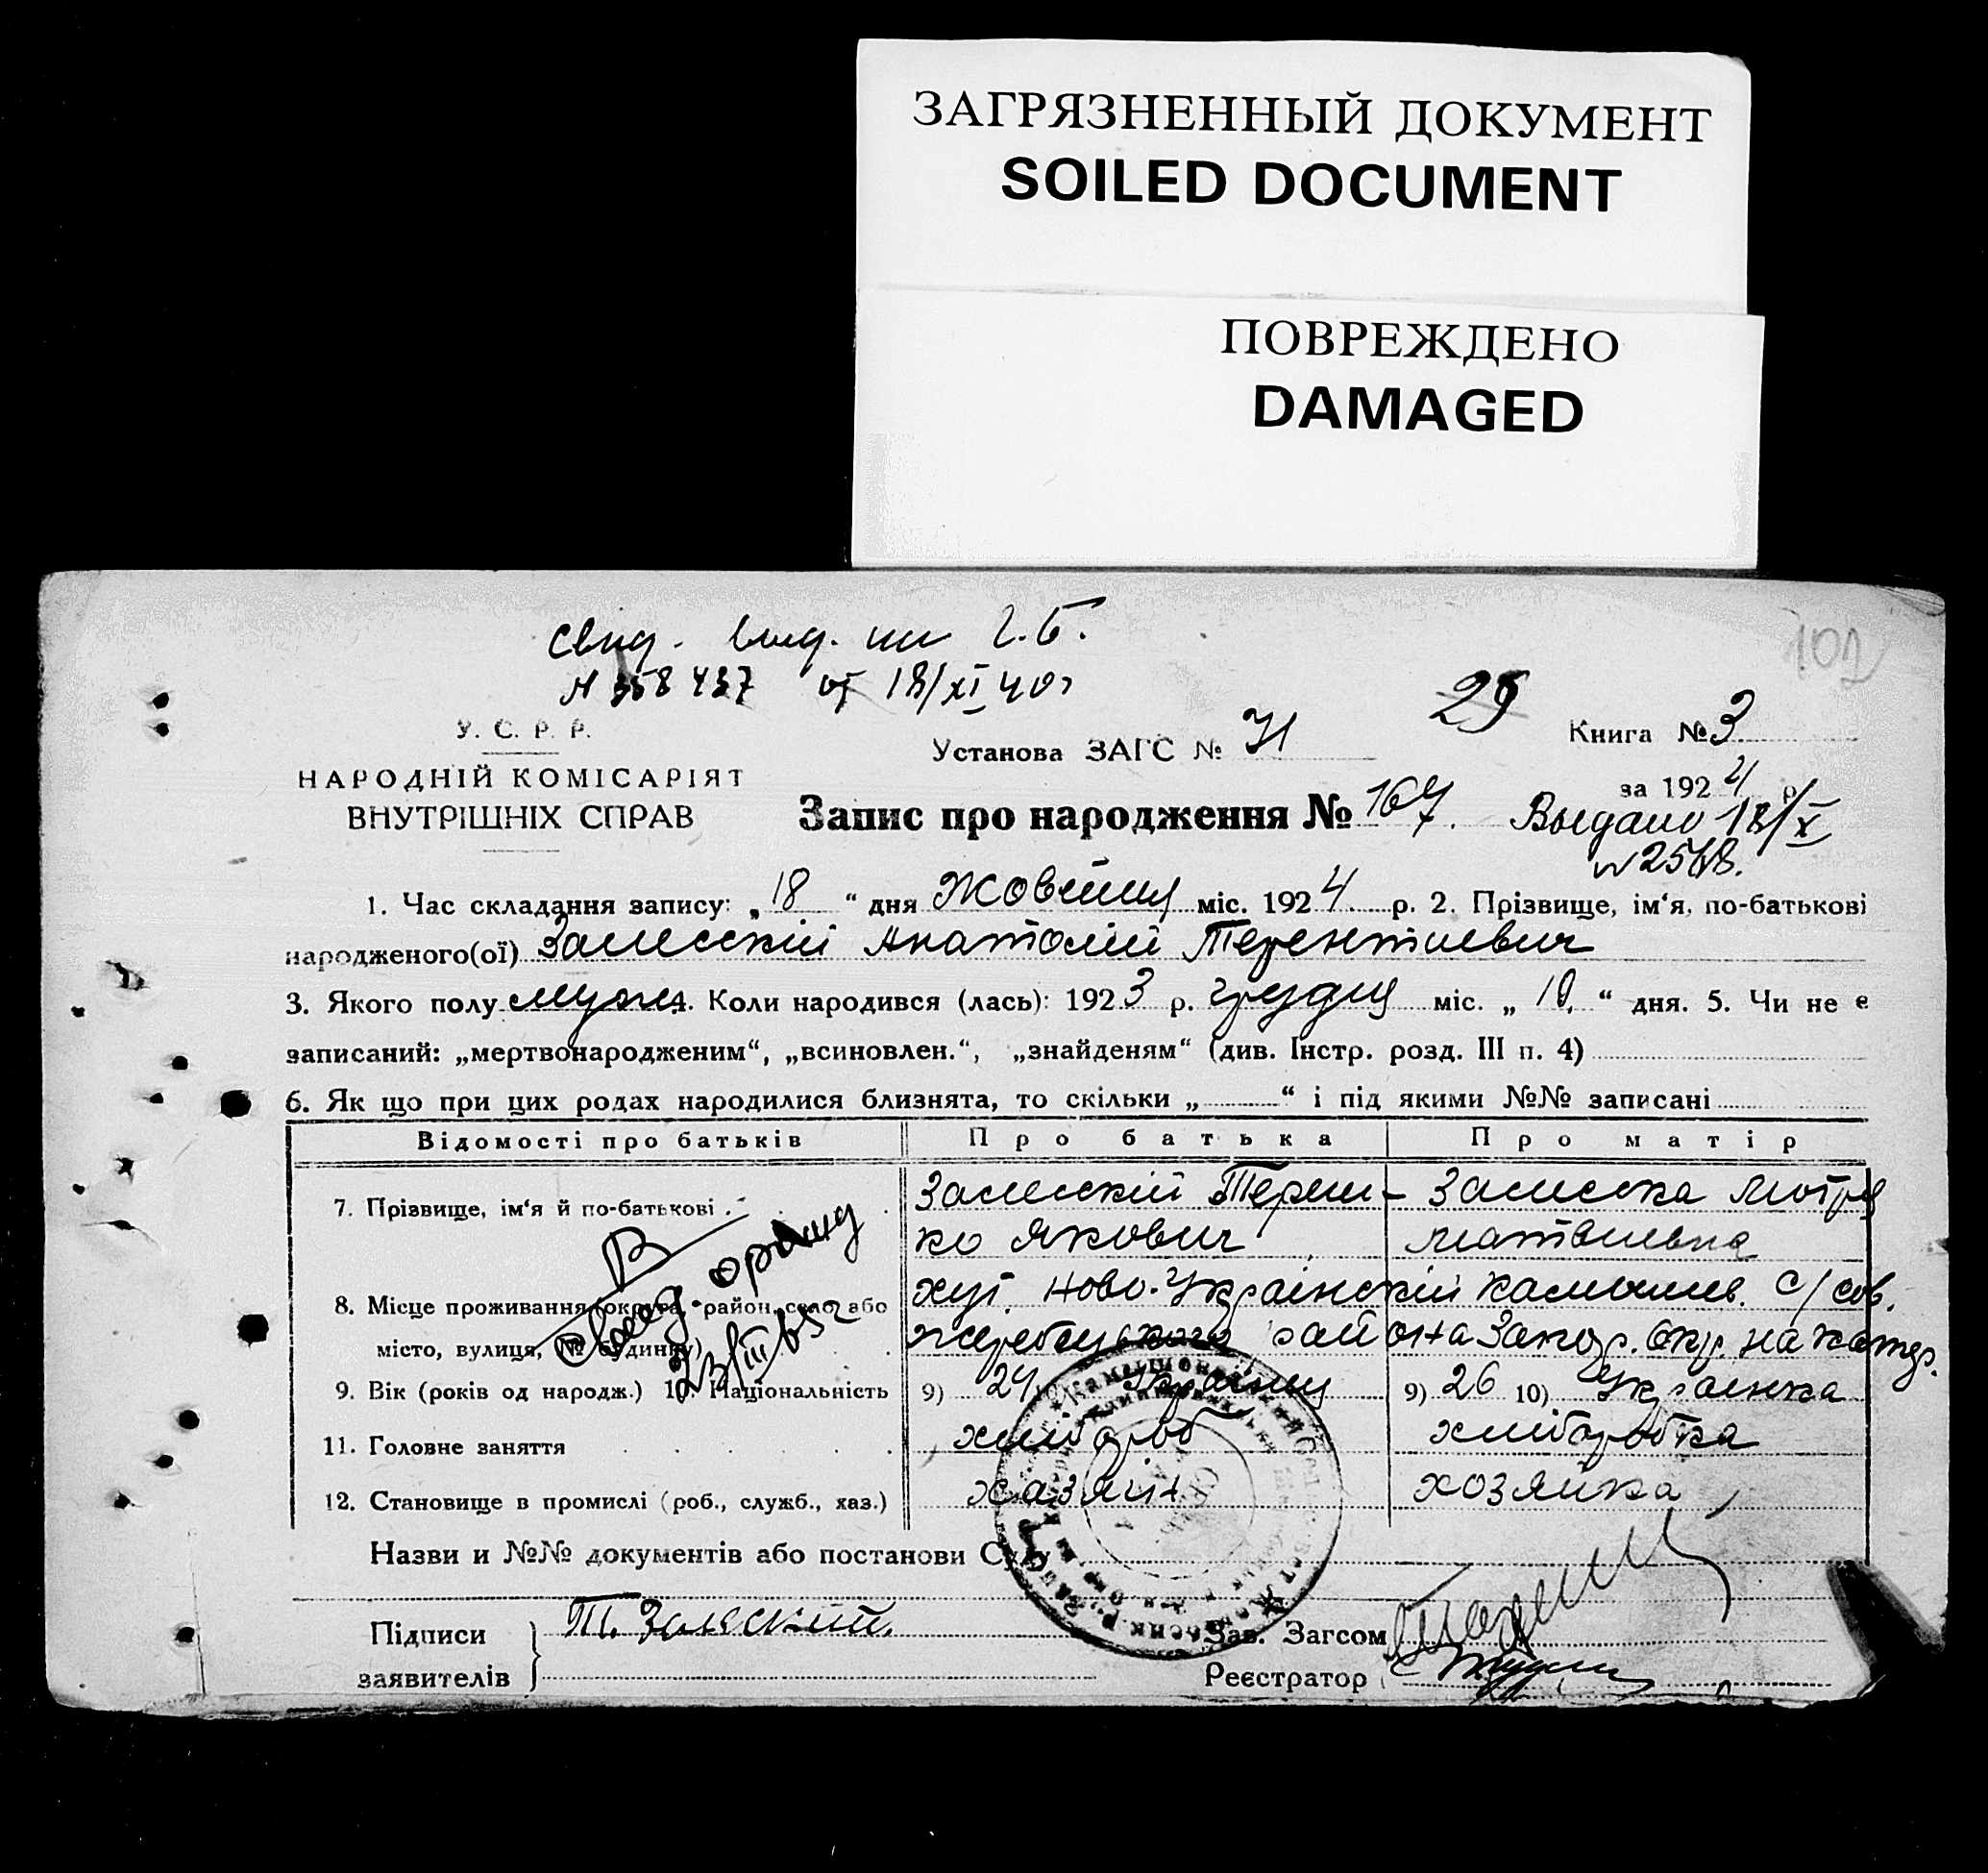 ЗАГРЯЗНЕННЫЙ ДОКУМЕНТ
SOILED DOCUMENT
ПОВРЕЖДЕНО
DAMAGED
102
№ 358437 от 18/XI 40г
У. С. Р. Р.
НАРОДНІЙ КОМІСАРІЯТ
ВНУТРІШНІХ СПРАВ
Установа ЗАГС №
29
Книга № 3
за 1924 р.
Запис про народження № 167.
Выдано 18/X
1. Час складання запису: „ 18 “ дня Жовтня міс. 1924. р. 2. Прізвище, ім‘я, по-батькові
народженого(ої) Залеській Анатолій Терентиевич
3. Якого полу муж. 4. Коли народився (лась): 1923 р. грудня міс. „ 10. “ дня. 5. Чи не є
записаний: „мертвонародженим“, „всиновлен.“, „знайденям“ (див. Інстр. розд. III п. 4)
6. Як що при цих родах народилися близнята, то скільки „ “ і під якими №№ записані
Відомості про батьків Про батька Про матір
7. Прізвище, ім‘я й по-батькові Залеській Тереш- Залеська Мотря
ко Якович Матвиевна
8. Місце проживання (округа, район, село або хут. Ново-Украінській Камышев. с/сов.
місто, вулиця, № будинку) района Запор. Окр. на Катер.
9. Вік (років од народж.) 10. Національність 9) 24 Украінец 9) 26 10) Украінка
11. Головне заняття хлібороб хліборобка
12. Становище в промислі (роб., служб., хаз.) хазяін хозяйка
Назви и №№ документів або постанови Суду
Підписи
заявителів
Т. Залеский.
Зав. Загсом
Реєстратор